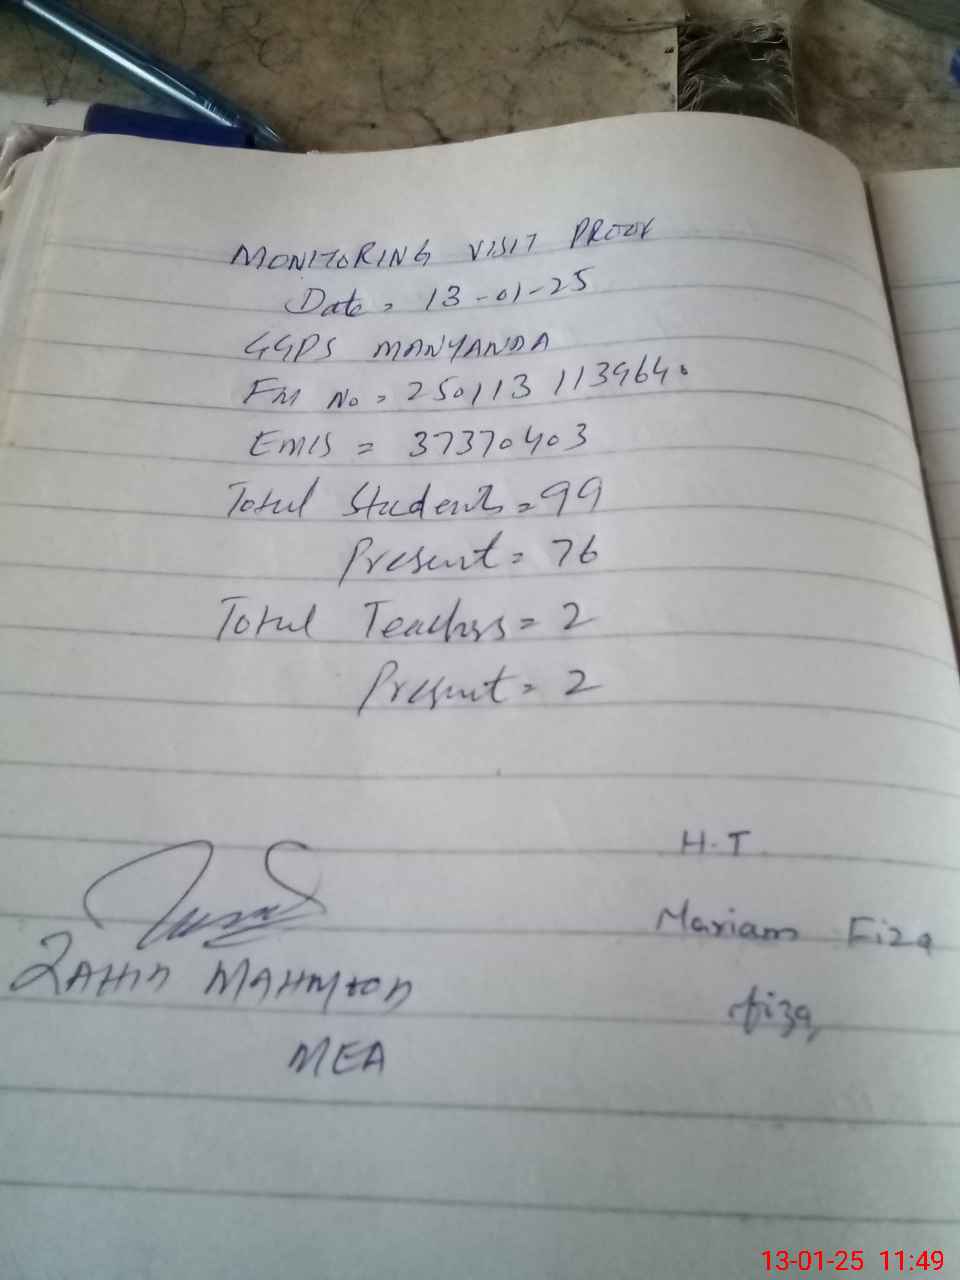 MONITORING VISIT PROOF
Date = 13-01-25
GGPS MANYANDA
FM No = 250113113964.
EMIS = 37370403
Total Students = 99
Present = 76
Total Teachers = 2
Present = 2
H.T
Mariam Fiza
fiza
ZAHID MAHMOOD
MEA
13-01-25 11:49